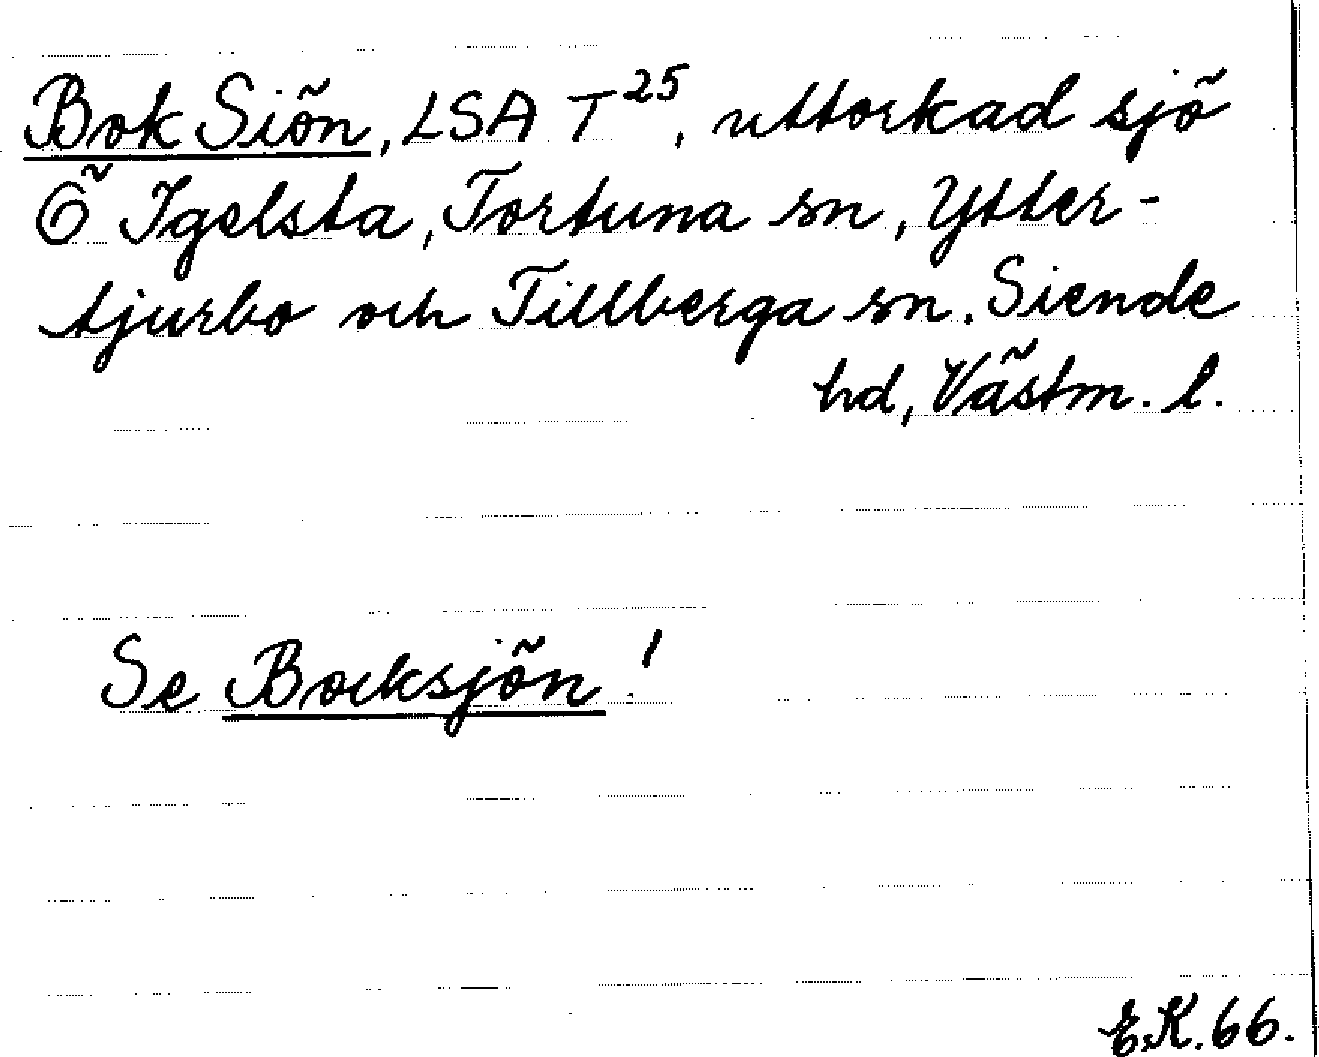 Bok Siön, LSA T²⁵, uttorkad sjö
Ö Igelsta, Tortuna sn, Ytter-
tjurbo och Tillberga sn. Siende
hd, Västm. l.
Se Bocksjön!
E.K. 66.